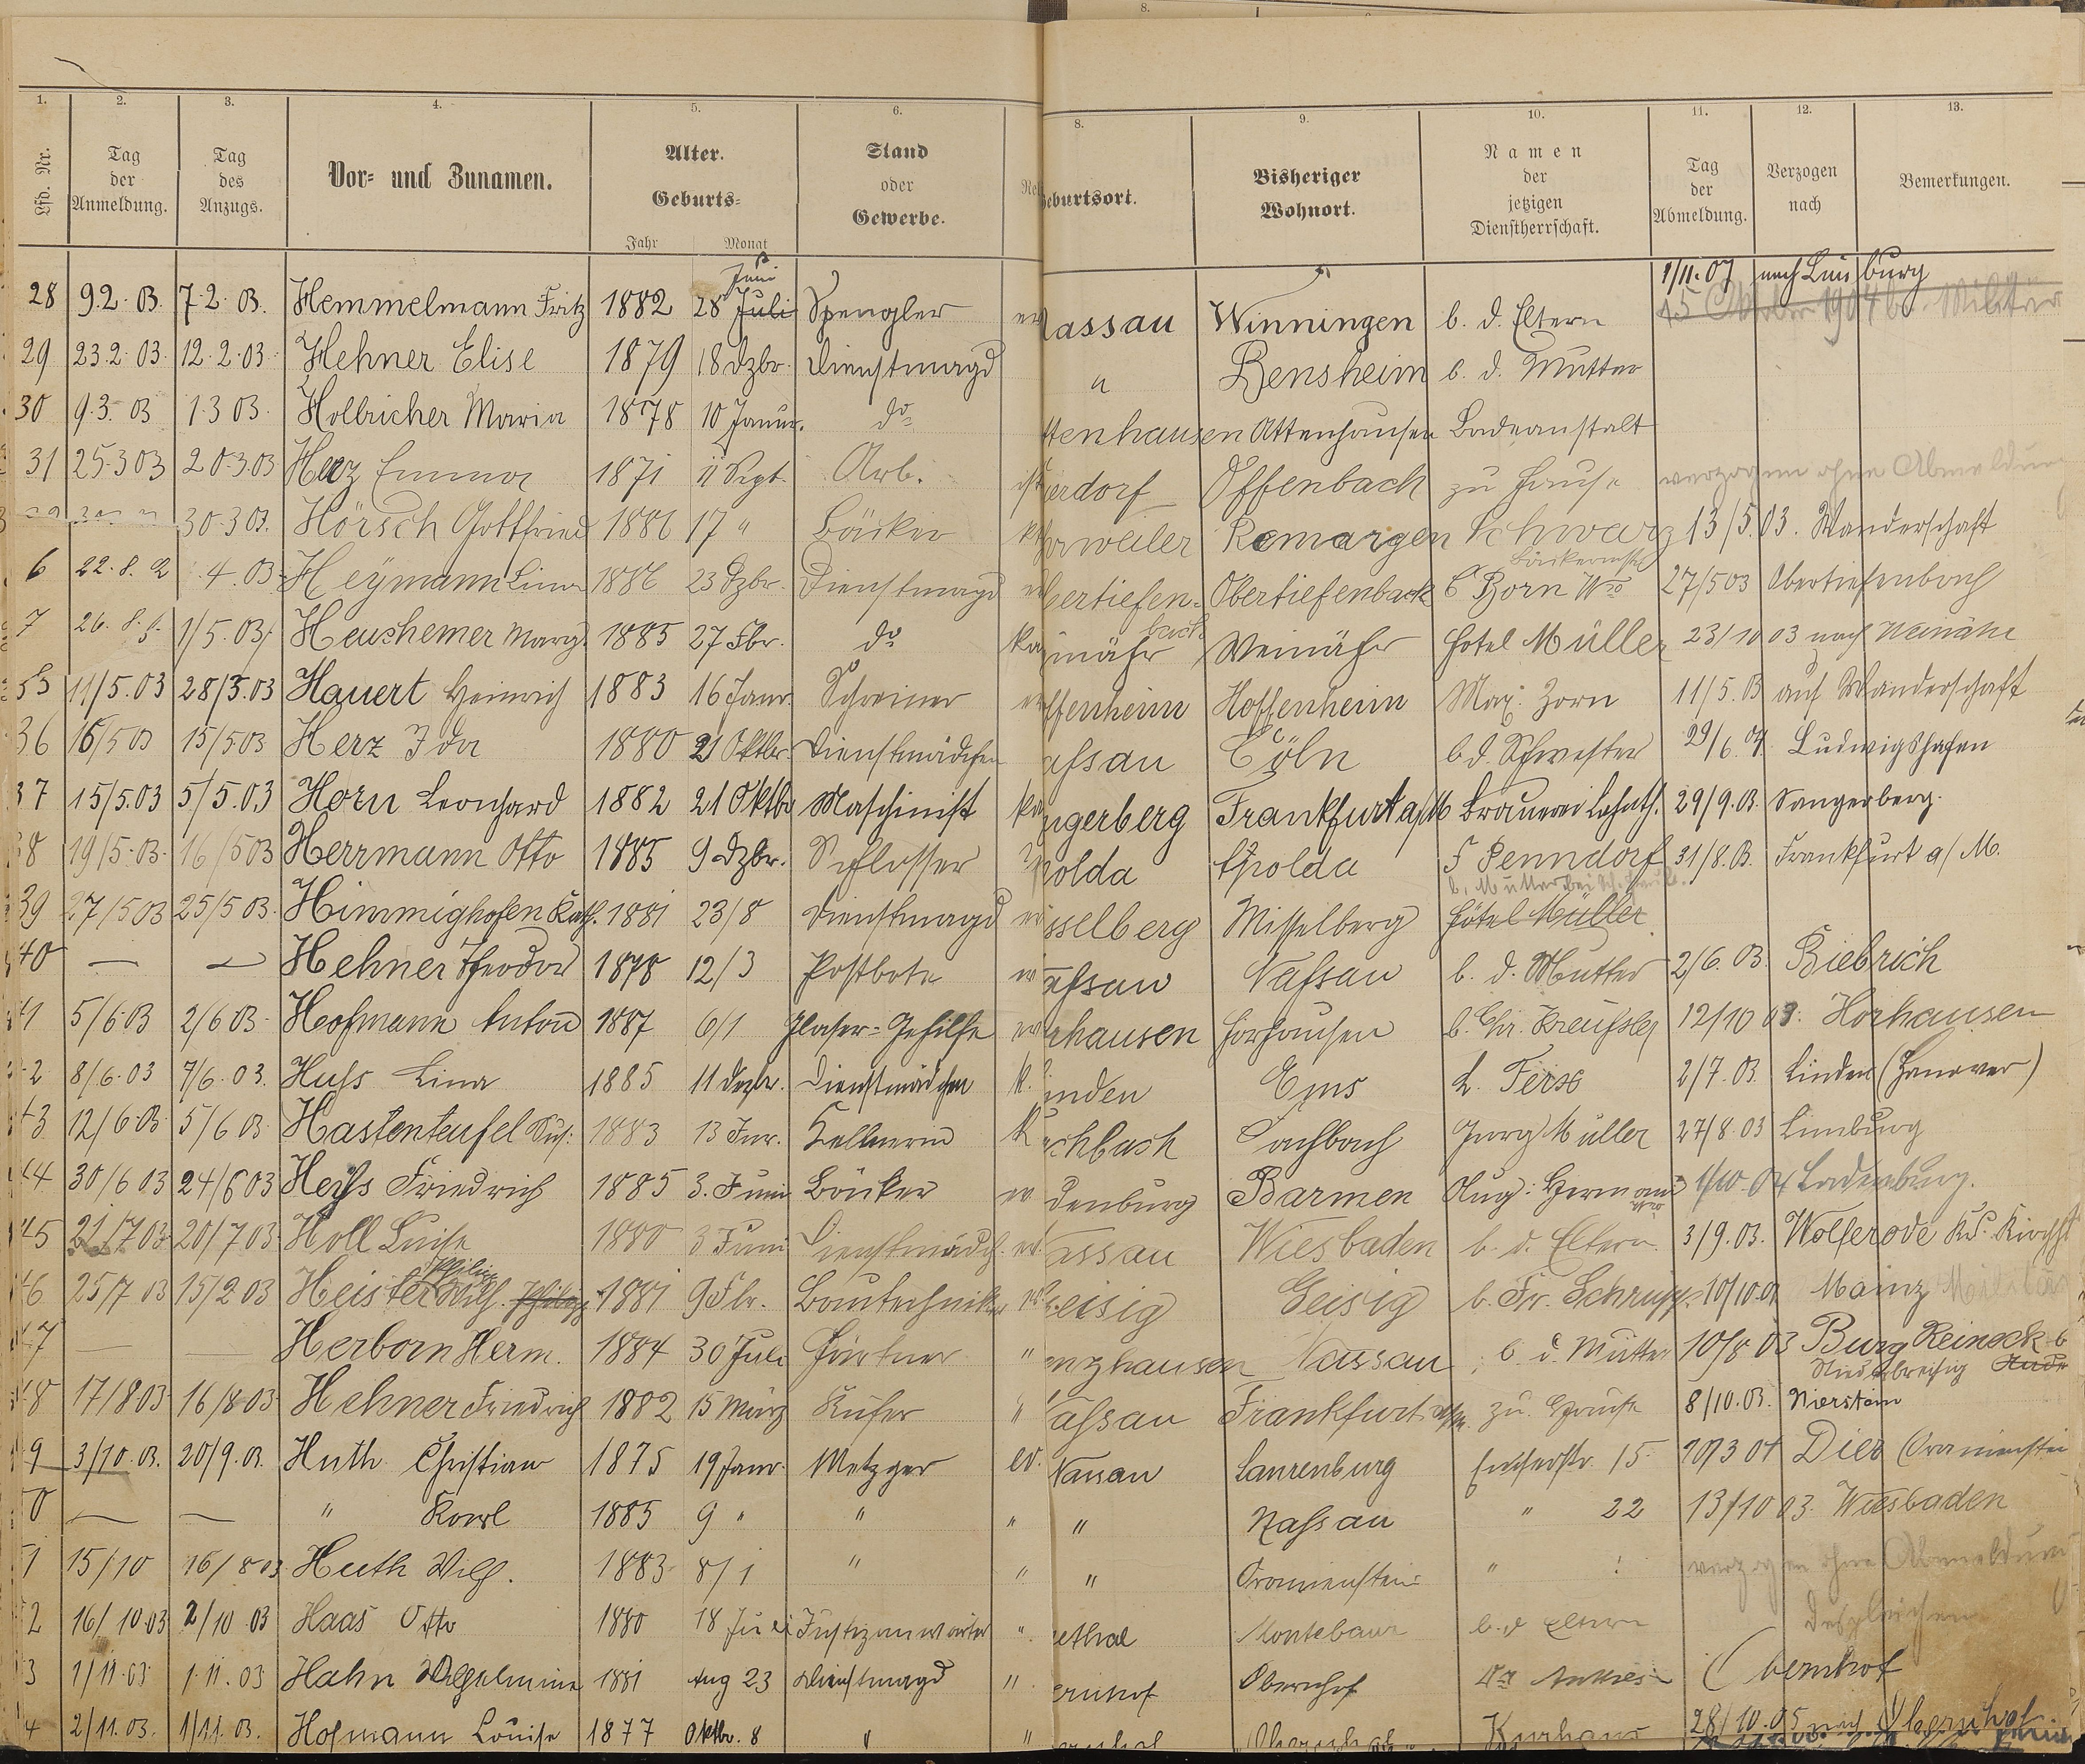 8.
1. 2. 3. 4. 5. 6. 8. 9. 10. 11. 12. 13.
Lfd. Nr. | Tag der Anmeldung. | Tag des Anzugs. | Vor- und Zunamen. | Alter. Geburts- Jahr Monat | Stand oder Gewerbe. | Rel | Geburtsort. | Bisheriger Wohnort. | Namen der jetzigen Dienstherrschaft. | Tag der Abmeldung. | Verzogen nach | Bemerkungen.
Juni 1/11.07 nach Luisburg
28 9.2.03. 7.2.03. Hemmelmann Fritz 1882 28 Juli Spengler ev Nassau Winningen b. d. Eltern 15 Oktober 1904 Militär
29 23.2.03. 12.2.03. Hehner Elise 1879 18 Dzbr. Dienstmagd " Bensheim b. d. Mutter
30 9.3.03 1.3 03. Holbricher Maria 1878 10 Januar. do ttenhausen Attenhausen Badeanstalt
31 25.3 03 20.3.03 Herz Emma 1871 11 Sept. Arb. ist erdorf Offenbach zu Hause verzogen ohne Abmeldung
30.3 03. Hörsch Gottfried 1886 17 " Bäcker k weiler Remargen Schwarz 13/5.03. Wanderschaft
Bäckermstr
6 22.8.2 .4.03. Heymann Lina 1886 23 Dzbr. Dienstmagd ev bertiefen- Obertiefenbach C Born Wwe 27/5 03 Obertiefenbach
bach
7 26.8. 1/5.03. Heushemer Marg. 1885 27 Fbr. do ka inähr Weinähr Hotel Müller 23/10 03 nach Weinähr
35 11/5.03 28/3.03 Hauert Heinrich 1883 16 Janr. Schreiner ev ffenheim Hoffenheim Max. Zorn 11/5.03 auf Wanderschaft
36 16/5 03 15/5 03 Herz Ida 1880 21 Oktbr. Dienstmädchen assau Cöln b d. Schwester 29/6.04. Ludwigshafen
37 15/5.03 5/5.03 Horn Leonhard 1882 21 Oktbr Maschinist ka ngerberg Frankfurt a/M Brauerei Lahnth. 29/9.03. Sangerberg.
38 19/5.03. 16/5 03 Herrmann Otto 1885 9 Dzbr. Schlosser polda Apolda F Penndorf 31/8.03. Frankfurt a/M.
b. Mutter bei
39 27/5 03 25/5 03. Himmighofen Kath. 1881 23/8 Dienstmagd ev sselberg Misselberg Hôtel Müller
40 — — Hehner Theodor 1878 12/3 Postbote ev assau Nassau b. d. Mutter 2/6.03. Biebrich
41 5/6.03 2/6 03. Hofmann Anton 1887 6/1 Glaser-Gehilfe ev rhausen Horhausen b. Chr. Kreußler 12/10 03. Horhausen
42 8/6.03 7/6.03. Huss Lina 1885 11 Dezbr. Dienstmädchen k. inden Ems L. Ferse 2/7.03. Linden (Hanover)
43 12/6.03. 5/6 03. Hastenteufel Sus: 1883 13 Jnr. Kellnerin k chbach Dachbach Jung Müller 27/8.03 Limburg
44 30/6 03 24/6 03 Heyss Friedrich 1885 3. Juni Bäcker ev denburg Barmen Aug: Hermani Wwe 1/10.04 Ladenburg.
45 21/7 03. 20/7 03 Holl Luise 1880 3 Juni Dienstmädch. ev. assau Wiesbaden b. d. Eltern. 3/9.03. Wolferode Ks. Kirchh
Philip
46 25/7 03 15/2 03 Heister Wilh. Philipp 1881 9 Fbr. Bautechniker ev eisig Geisig b. Fr. Schrupp. 10/10.03 Mainz Militär
47 — — Herborn Herm. 1884 30 Juli Gärtner " nzhausen Nassau b. d. Mutter 10/8 03 Burg Reineck b
Niederbreisig
48 17/8 03 16/8 03 Hehner Friedrich 1882 15 März Küfer " assau Frankfurt a/M. zu Hause 8/10.03. Nierstein
49 3/10.03. 20/9.03. Huth Christian 1875 19 Janr. Metzger ev. Nassau Laurenburg Emserstr. 15. 10/3 04 Diez Oranienstein
50 — — " Karl 1885 9 " " " " Nassau " 22 13/10 03. Wiesbaden
51 15/10 16/8 03 Huth Wilh. 1883 8/1 " " " Oranienstein " verzogen ohne Abmeldung
52 16/10.03 2/10 03 Haas Otto 1880 18 Juli Justizanwärter ". ethal Montebaur b. d Eltern desgleichen
53 1/11.03 1.11.03 Hahn Wilhelmine 1881 Aug 23 Dienstmagd " ernhof Obernhof Dr Anthes Obernhof
54 2/11.03. 1/11.03. Hofmann Louise 1877 Oktbr. 8 " " Obernhof Kurhaus 28/10.05 nach Obernhof